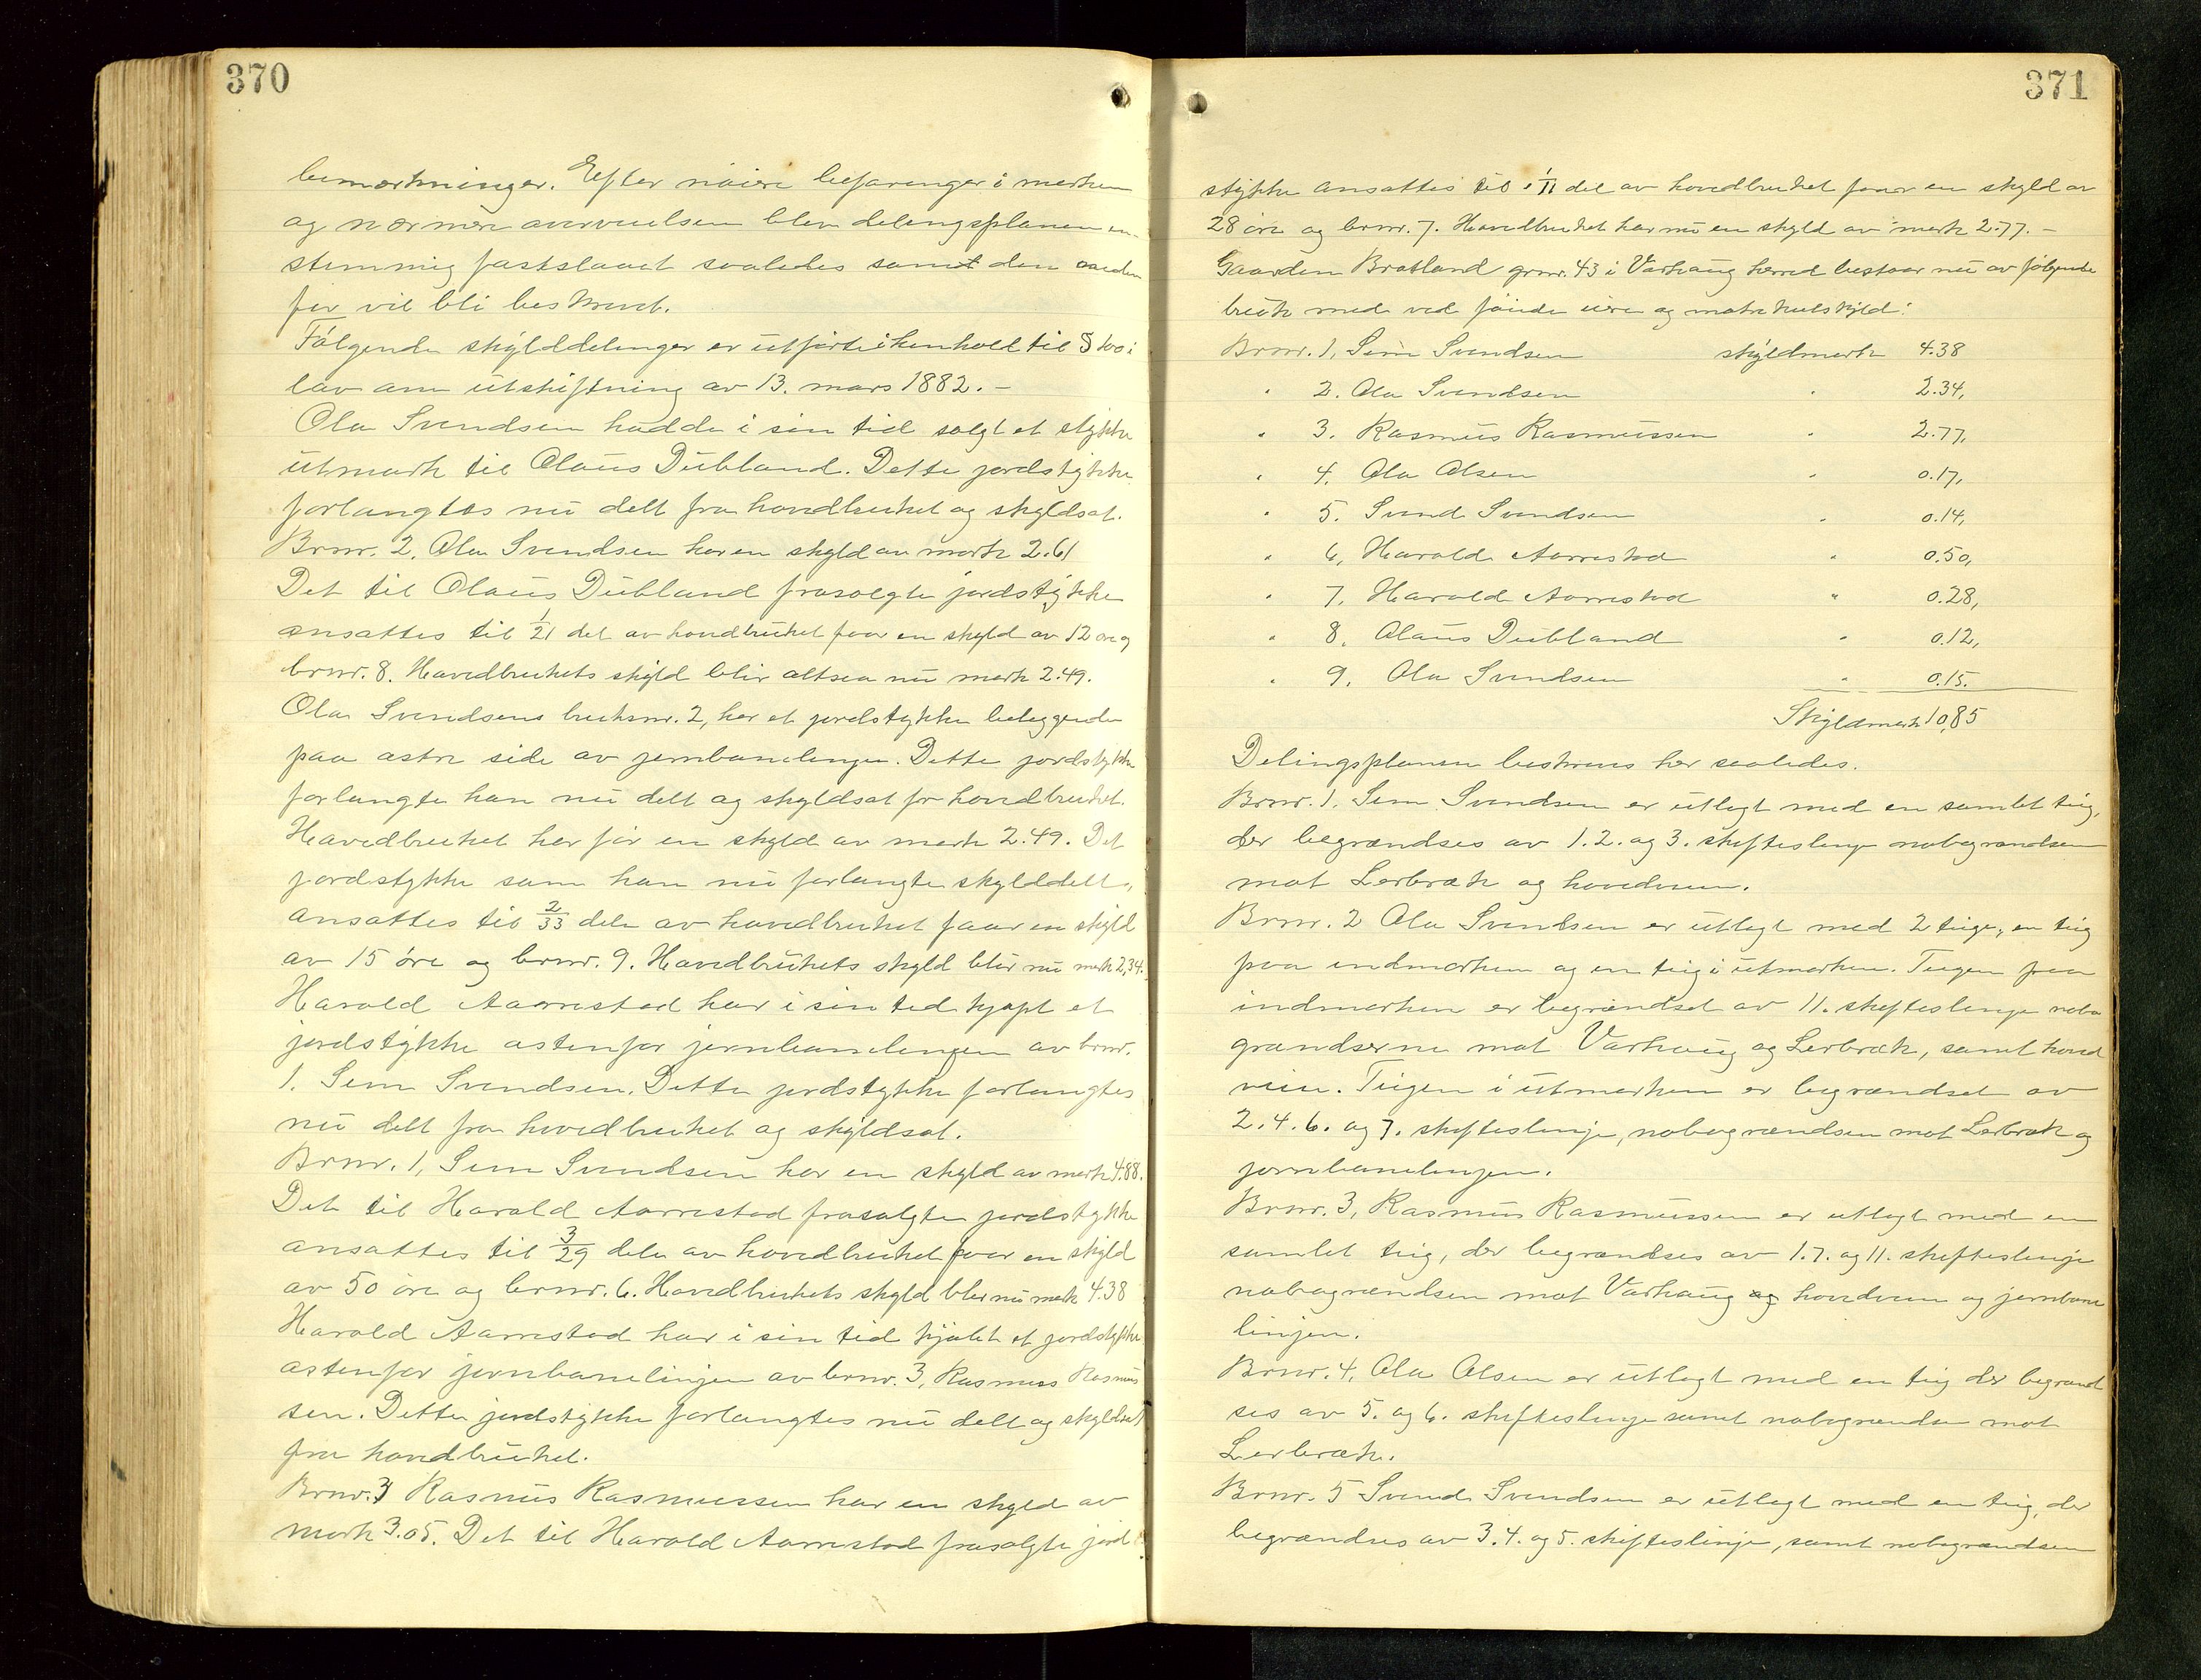 370
bemærkninger. Efter nøiere befaringer i marken
og nærmere overveielsen blev delingsplanen en-
stemmig fastslaaet saaledes samt den
for vil bli beskrevet.
Følgende skylddelinger er utført i henhold til § 100 i
lov om utskiftning av 13. mars 1882. –
Ola Svendsen hadde i sin tid solgt et stykke
utmark til Olaus Dubland. Dette jordstykke
forlangtes nu delt fra hovedbruket og skyldsat.
Brnr. 2. Ola Svendsen har en skyld av mark 2.61
Det til Olaus Dubland frasolgte jordstykke
ansattes til 1/21 del av hovedbruket faar en skyld av 12 øre og
brnr. 8. Hovedbrukets skyld blir altsaa nu mark 2.49.
Ola Svendsens bruksnr. 2, har et jordstykke beliggende
paa østre side av jernbanelinjen. Dette jordstykke
forlangte han nu delt og skyldsat fra hovedbruket.
Hovedbruket har før en skyld av mark 2.49. Det
jordstykke som han nu forlangte skylddelt,
ansattes til 2/33 dele av hovedbruket faar en skyld
av 15 øre og brnr. 9. Hovedbrukets skyld blir nu mark 2,34.
Harald Aarrestad har i sin tid kjøpt et
jordstykke østenfor jernbanelingen av brnr.
1. Sem Svendsen. Dette jordstykke forlangtes
nu delt fra hovedbruket og skyldsat.
Brnr. 1, Sem Svendsen har en skyld av mark 4.88.
Det til Harald Aarrestad frasolgte jordstykke
ansattes til 3/29 dele av hovedbruket faar en skyld
av 50 øre og brnr. 6. Hovedbrukets skyld blir nu mark 4.38
Harald Aarrestad har i sin tid kjøbt et jordstykke
østenfor jernbanelinjen av brnr. 3, Rasmus Rasmus
sen. Dette jordstykke forlangtes nu delt og skyldsat
fra hovedbruket.
Brnr. 3 Rasmus Rasmussen har en skyld av
mark 3.05. Det til Harald Aarrestad frasolgte jord
371
stykke ansattes til 1/11 del av hovedbruket faar en skyld av
28 øre og brnr. 7. Hovedbruket har nu en skyld av mark 2.77. –
Gaarden Bratland grnr. 43 i Varhaug herred bestaar nu av følgende
bruk med ved føiede eiere og matrikulskyld:
Brnr. 1, Sem Svendsen skyldmark 4.38
" 2. Ola Svendsen " 2.34,
" 3. Rasmus Rasmussen " 2.77,
" 4. Ola Olsen " 0.17,
" 5. Svend Svendsen " 0.14,
" 6, Harald Aarrestad " 0.50,
" 7. Harald Aarrestad " 0.28,
" 8. Olaus Dubland " 0.12,
" 9. Ola Svendsen " 0.15.
Skyldmark 10,85
Delingsplanen beskrives her saaledes.
Brnr. 1. Sem Svendsen er utlagt med en samlet teig,
der begrændses av 1. 2. og 3. skifteslinje nabogrændsen
mot Lerbræk og hovedveien.
Brnr. 2 Ola Svendsen er utlagt med 2 teige, en teig
paa indmarken og en teig i utmarken. Teigen paa
indmarken er begrændset av 11. skifteslinje nabo
grændserne mot Varhaug og Lerbræk, samt hoved
veien. Teigen i utmarken er begrændset av
2. 4. 6. og 7. skifteslinje, nabogrændsen mot Lerbræk og
jernbanelinjen.
Brnr. 3, Rasmus Rasmussen er utlagt med en
samlet teig, der begrændses av 1. 7. og 11. skifteslinje
nabogrændsen mot Varhaug og hovedveien og jernbane
linjen.
Brnr. 4, Ola Olsen er utlagt med en teig der begrænd
ses av 5. og 6. skifteslinje samt nabogrændse mot
Lerbræk.
Brnr. 5 Svend Svendsen er utlagt med en teig, der
begrændses av 3. 4. og 5. skifteslinje, samt nabogrændsen